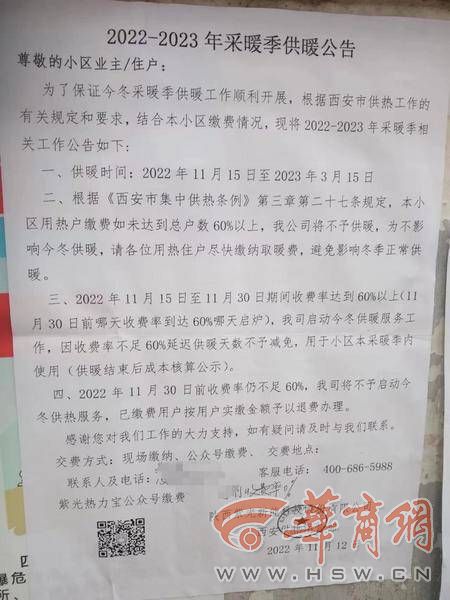 2022-2023年采暖季供暖公告
尊敬的小区业主/住户：
为了保证今冬采暖季供暖工作顺利开展，根据西安市供热工作的
有关规定和要求，结合本小区缴费情况，现将2022-2023年采暖季相
关工作公告如下：
一、供暖时间：2022年11月15日至2023年3月15日
二、根据《西安市集中供热条例》第三章第二十七条规定，本小
区用热户缴费如未达到总户数60%以上，我公司将不予供暖，为不影
响今冬供暖，请各位用热住户尽快缴纳取暖费，避免影响冬季正常供
暖。
三、2022年11月15日至11月30日期间收费率达到60%以上(11
月30日前哪天收费率到达60%哪天启炉)，我司启动今冬供暖服务工
作，因收费率不足60%延迟供暖天数不予减免，用于小区本采暖季内
使用（供暖结束后成本核算公示）。
四、2022年11月30日前收费率仍不足60%，我司将不予启动今
冬供热服务，已缴费用户按用户实缴金额予以退费办理。
感谢您对我们工作的大力支持，如有疑问请及时与我们联系。
交费方式：现场缴纳、公众号缴费、交费地点：
联系人及电话： 客服电话：400-686-5988
紫光热力宝公众号缴费
陕西 有限公司
西安
2022年11月12
华商网
WWW.HSW.CN
四
爆危
所、